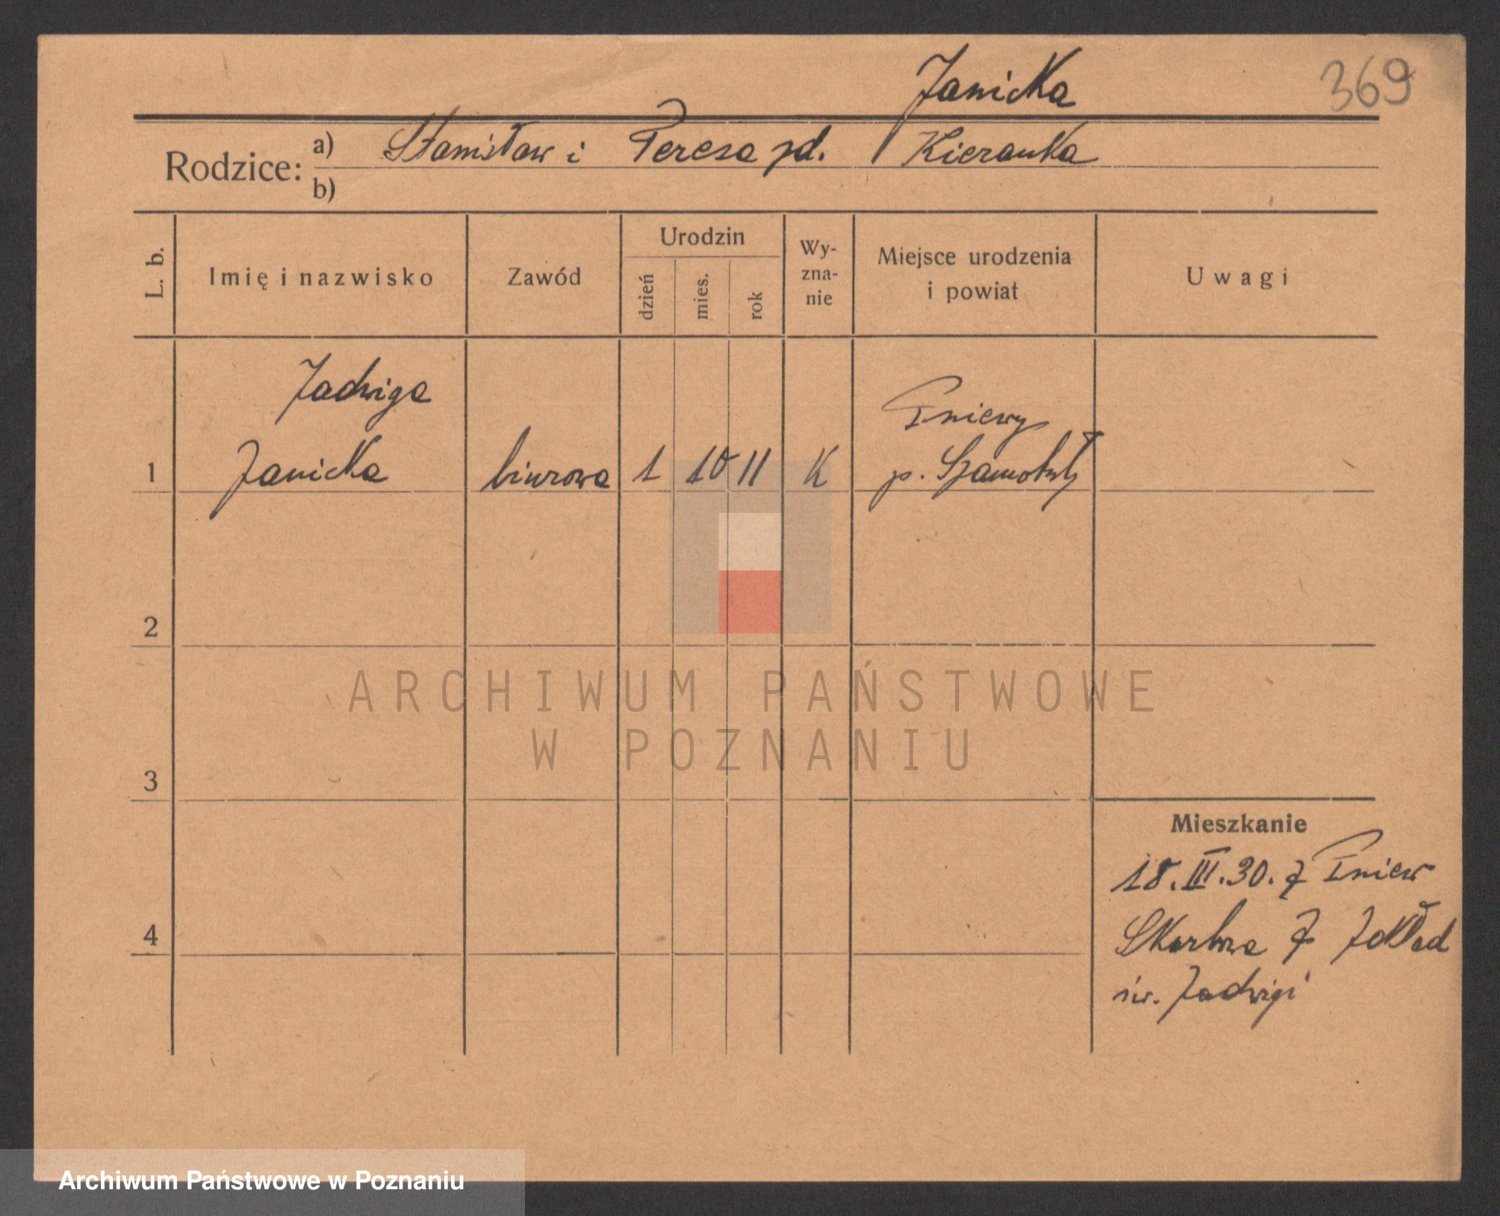 Janicka
369
Rodzice: a) Stanisław i Teresa zd. Kieranka
b)
L. b.
Imię i nazwisko
Zawód
Urodzin
dzień
mies.
rok
Wy-
zna-
nie
Miejsce urodzenia
i powiat
Uwagi
Jadwiga
Pniewy
1 Janicka biurowa 1 10 11 K p. Szamotuły
2
ARCHIWUM PAŃSTWOWE
W POZNANIU
3
Mieszkanie
18.III.30. z Pniew
4
Skarbowa 7 Zakład
św. Jadwigi
Archiwum Państwowe w Poznaniu